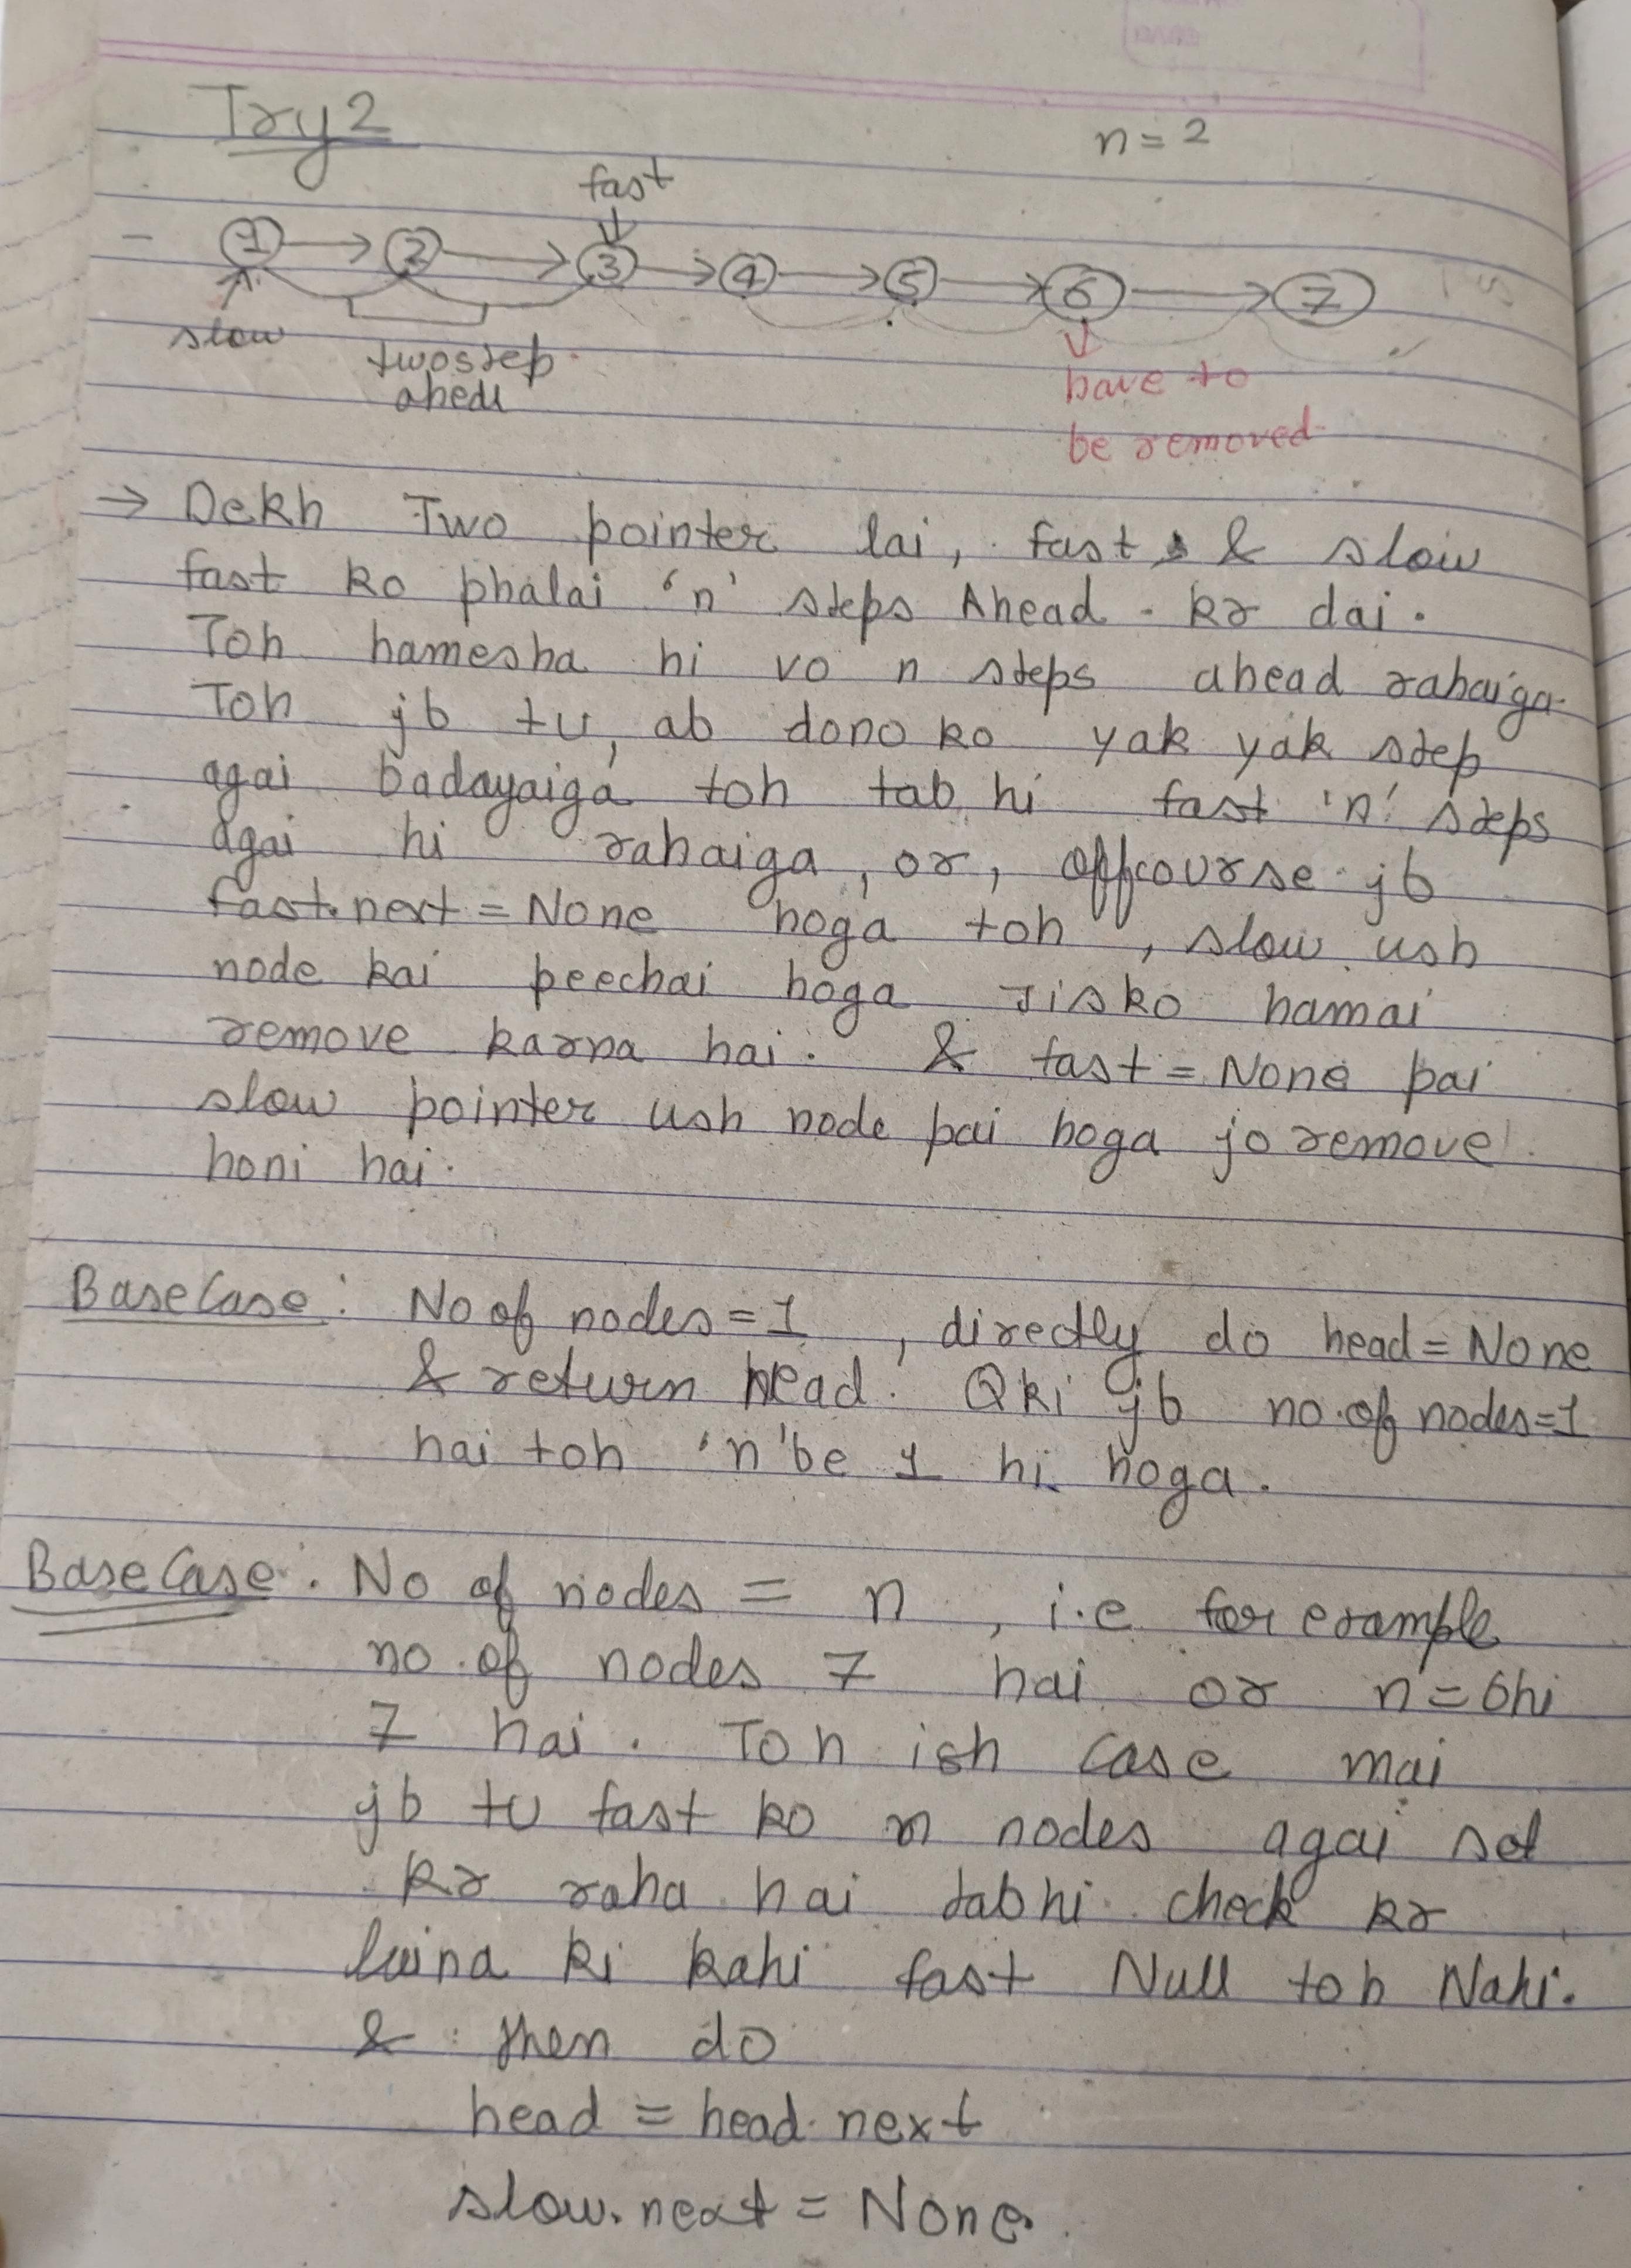 Try 2
n = 2
fast
1 → 2 → 3 → 4 → 5 → 6 → 7
slow
two step
ahed
have to
be removed
→ Dekh Two pointer lai, fast & slow
fast ko phalai 'n' steps Ahead - kr dai.
Toh hamesha hi vo n steps ahead rahaiga.
Toh jb tu, ab dono ko yak yak step
agai badayaiga toh tab hi fast 'n' steps
agai hi rahaiga, or, offcourse jb
fast.next = None hoga toh, slow ush
node kai peechai hoga Jisko hamai
remove karna hai. & fast = None pai
slow pointer ush node pai hoga jo remove
honi hai.
Base Case: No of nodes = 1, directly do head = None
& return head. Qki jb no. of nodes = 1
hai toh 'n' be 1 hi hoga.
Base Case: No of nodes = n, i.e for example
no. of nodes 7 hai or n = bhi
7 hai. Toh ish case mai
jb tu fast ko n nodes agai set
kr raha hai tabhi check kr
laina ki kahi fast Null toh Nahi.
& then do
head = head.next
slow.next = None.